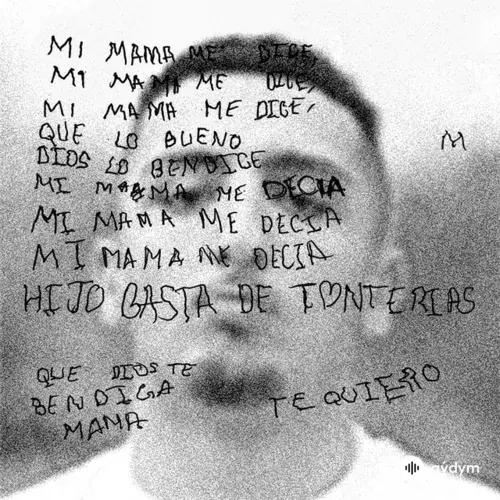 MI MAMA ME DICE,
MI MAMA ME DICE,
MI MAMA ME DICE,
QUE LO BUENO
M
DIOS LO BENDICE
MI MAMA ME DECIA
MI MAMA ME DECIA
MI MAMA ME DECIA
HIJO BASTA DE TONTERIAS
QUE DIOS TE
BENDIGA
MAMA
TE QUIERO
aýdym